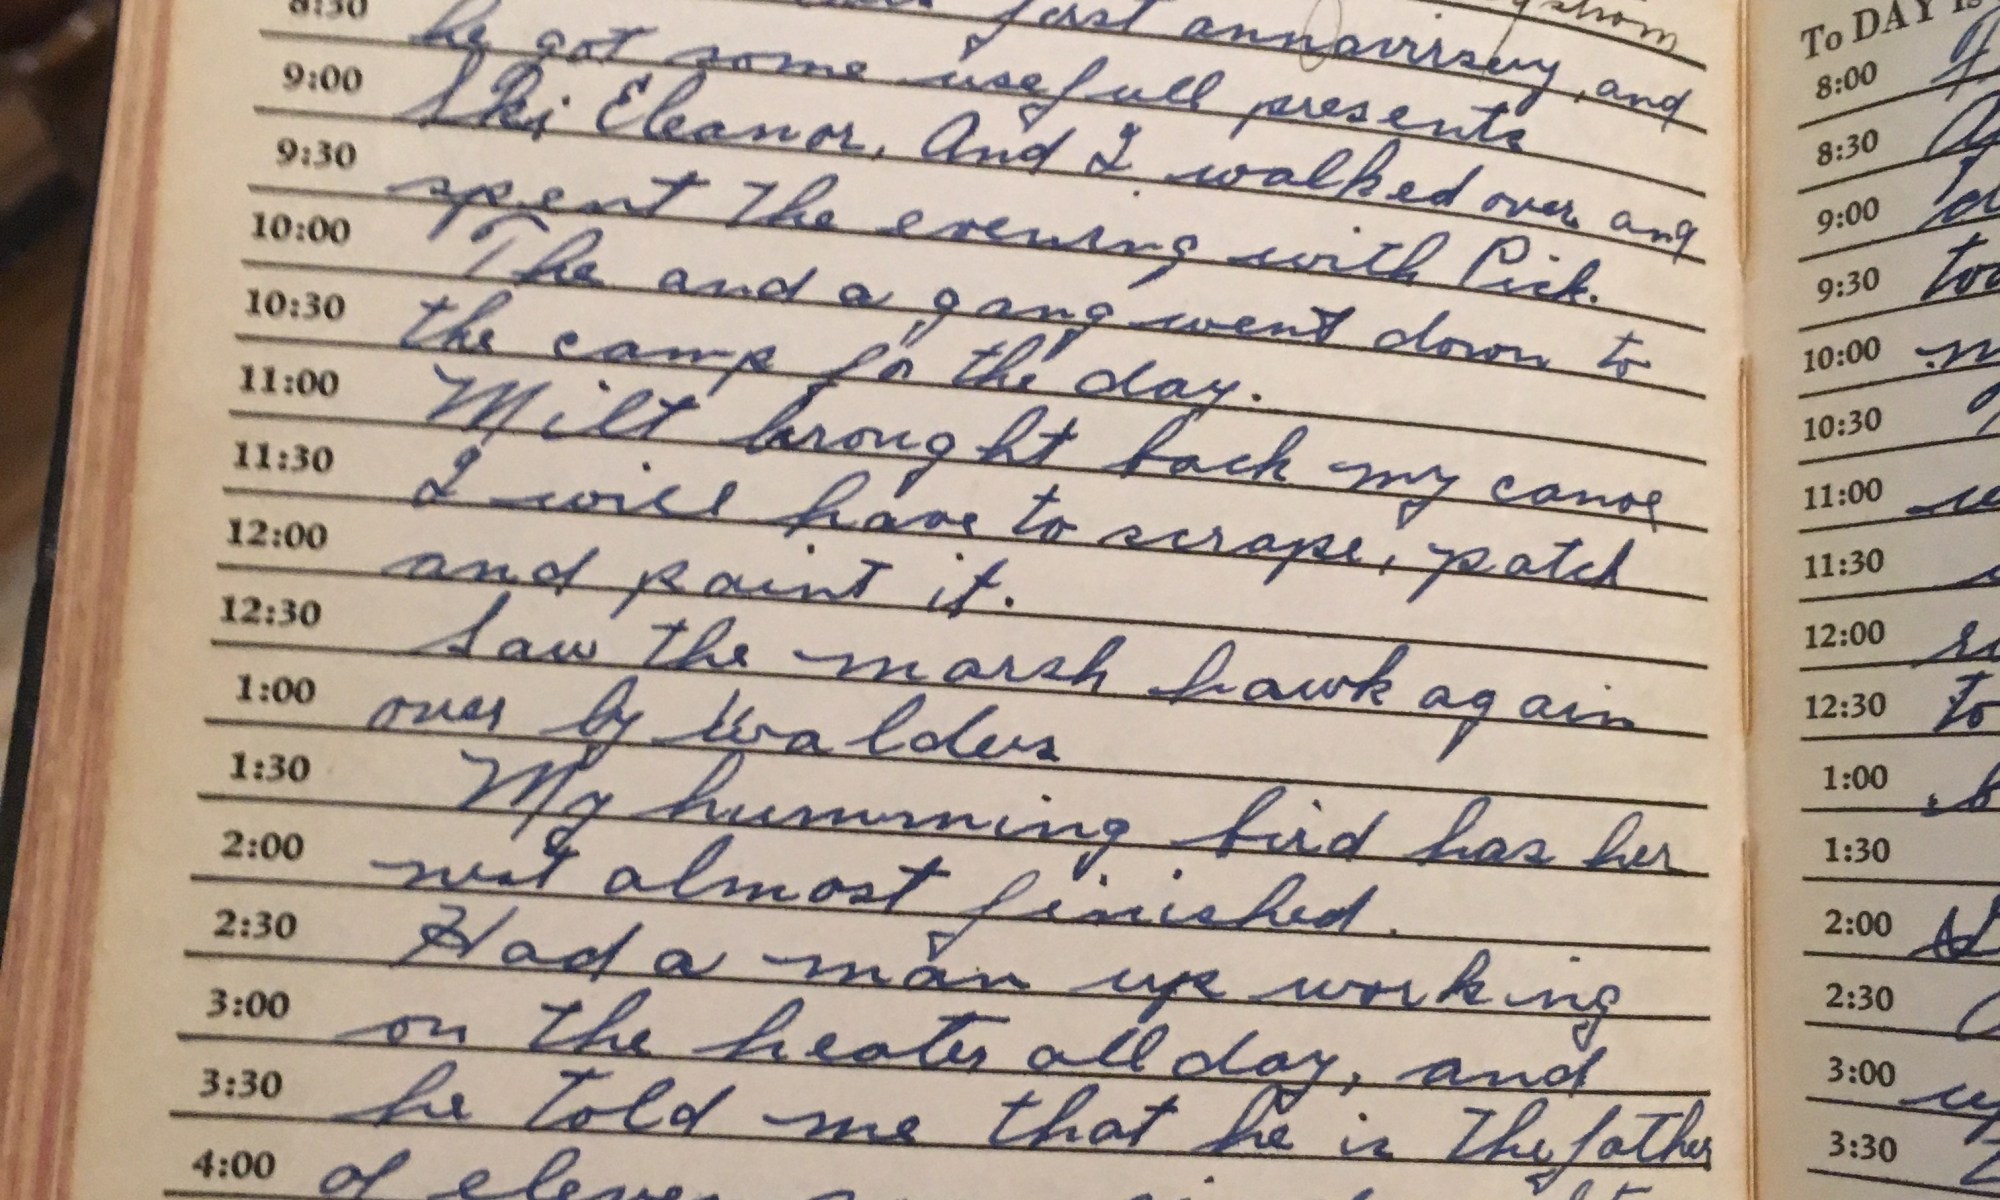 first annaivirsery, and
8:30 he got some usefull presents
9:00 Ski Eleanor, And I walked over and
9:30 spent the evening with Pick.
10:00 The and a gang went down to
10:30 the camp fo the day.
11:00 Milt brought back my canoe
11:30 I will have to scrape, patch
12:00 and paint it.
12:30 Saw the marsh hawk again
1:00 over by Walders
1:30 My humming bird has her
2:00 nest almost finished.
2:30 Had a man up working
3:00 on the heater all day, and
3:30 he told me that he is the father
4:00 of eleven
To DAY is
8:00
8:30
9:00
9:30
10:00
10:30
11:00
11:30
12:00
12:30 to
1:00
1:30
2:00
2:30
3:00
3:30